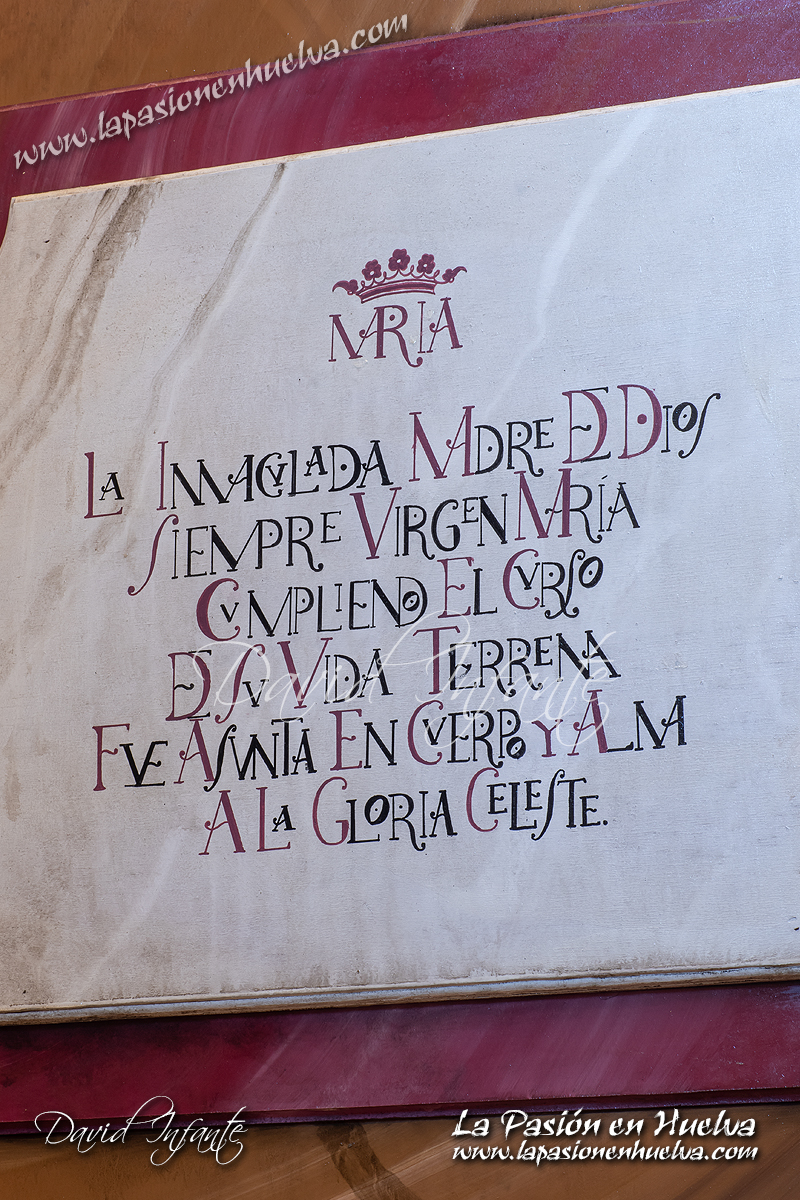 www.lapasionenhuelva.com
MARIA
LA INMACULADA MADRE DE DIOS
SIEMPRE VIRGEN MARÍA
CUMPLIENDO EL CURSO
DE SU VIDA TERRENA
David Infante
FUE ASUNTA EN CUERPO Y ALMA
A LA GLORIA CELESTE.
David Infante
La Pasión en Huelva
www.lapasionenhuelva.com